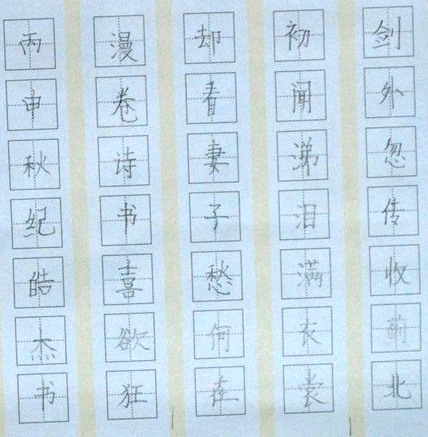 剑外忽传收蓟北
初闻涕泪满衣裳
却看妻子愁何在
漫卷诗书喜欲狂
丙申秋纪皓杰书